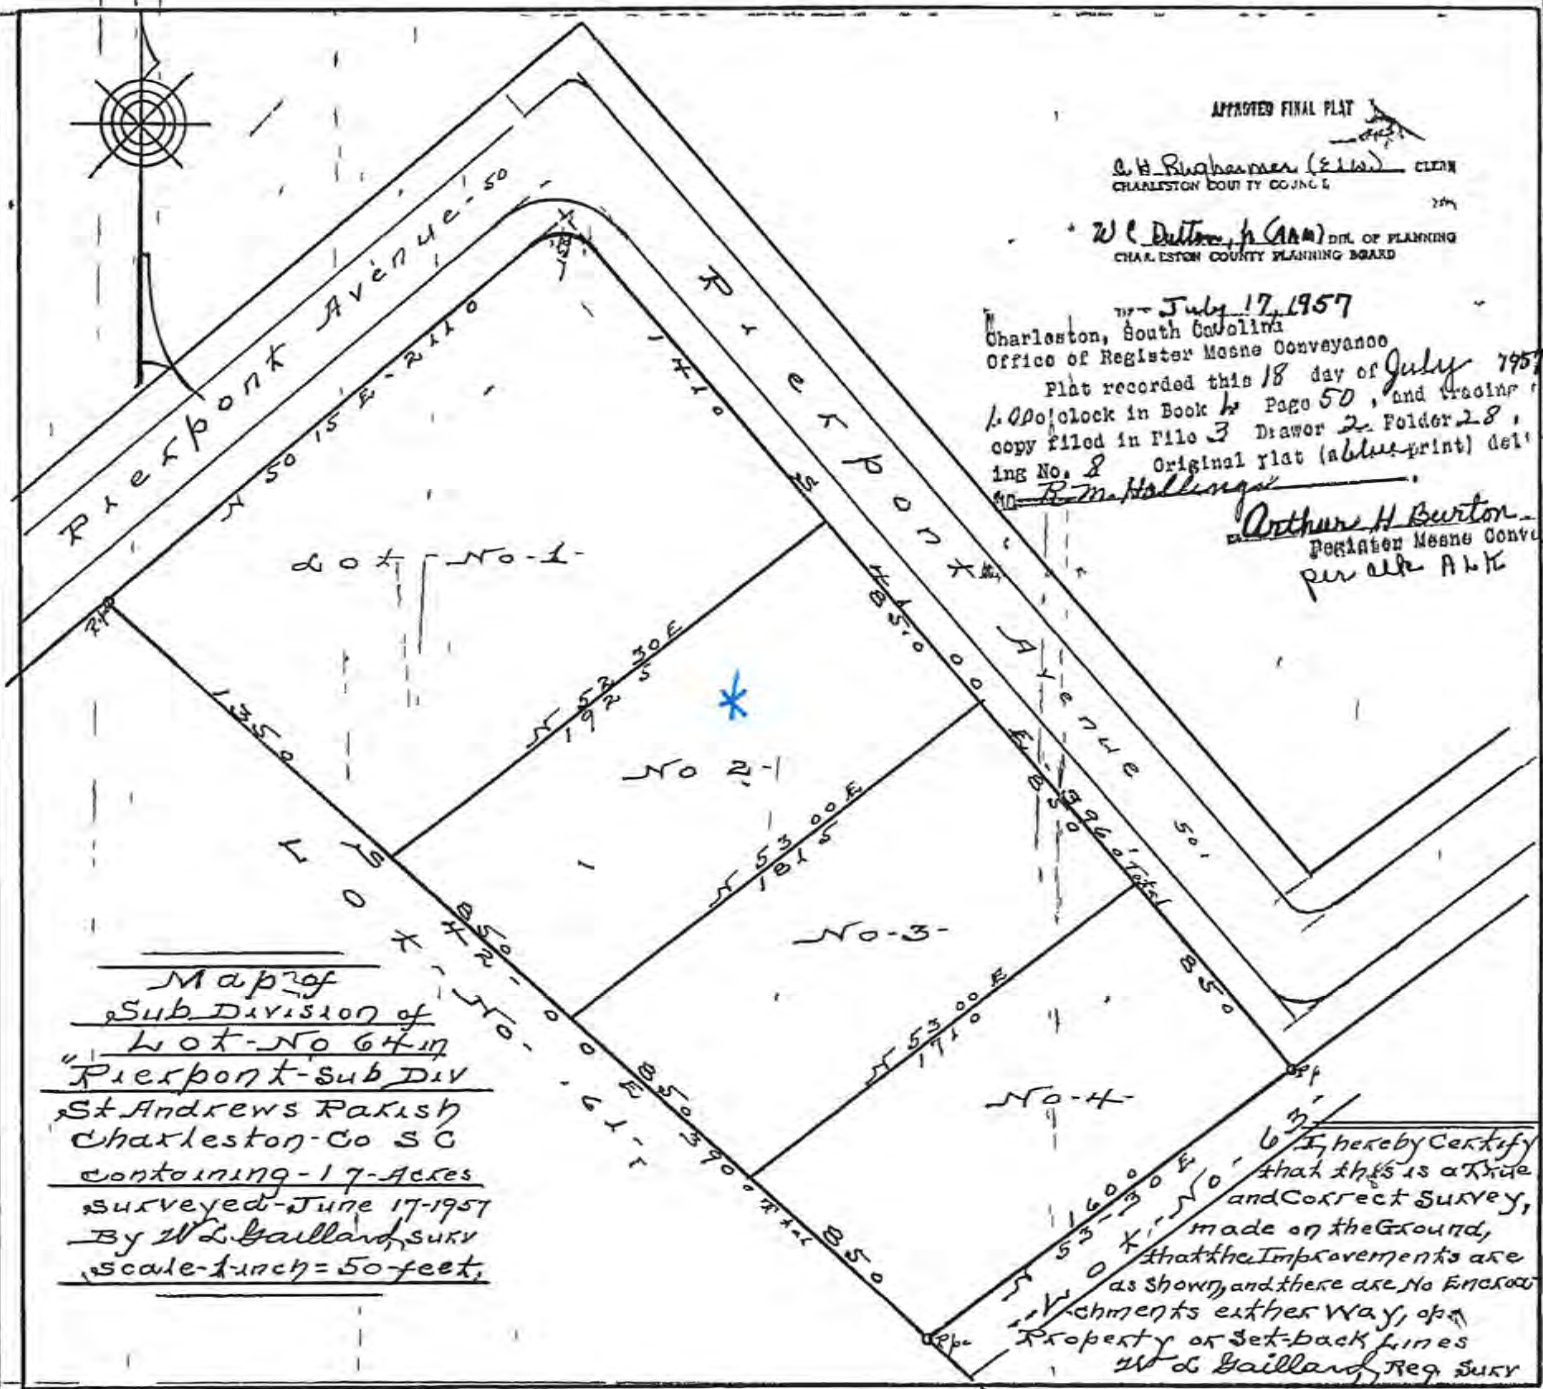 APPROVED FINAL PLAT
CLERK
CHARLESTON COUNTY COUNCIL
W C Dutton, Jr (AAM) DIR. OF PLANNING
CHARLESTON COUNTY PLANNING BOARD
July 17, 1957
Charleston, South Carolina
Office of Register Mesne Conveyance
Plat recorded this 18 day of July 1957
1.00 o'clock in Book L Page 50, and tracing
copy filed in File 3 Drawer 2 Folder 28,
ing No. 8 Original Plat (a blue print) del'
to R. M. Hollings
Arthur H Burton
Register Mesne Conve
per clk A L K
Pierpont Avenue - 50
Pierpont Avenue 50'
N 50 15 E - 211 0
141 0
S 41 00 E - 396 0 Total
85.0
85 0
85 0
Lot No-1-
N 52 30 E
192 5
No 2-
N 53 00 E
181 5
No-3-
N 53 00 E
171 0
No-4-
160 0
N 53-30 E
135 0
S 42-00 E 390 0 Total
85 0
85 0
85 0
Lot-No-61-
Lot No-63
Map of
Sub Division of
Lot-No 64 in
"Pierpont-Sub Div
St Andrews Parish
Charleston-Co S C
containing-1 7-Acres
surveyed-June 17-1957
By W L Gaillard, Surv
scale-1-inch = 50-feet,
I, hereby Certify
that this is a True
and Correct Survey,
made on the Ground,
that the Improvements are
as shown, and there are No Encroa
chments either Way, on
Property or Set-back Lines
W L Gaillard, Reg Surv